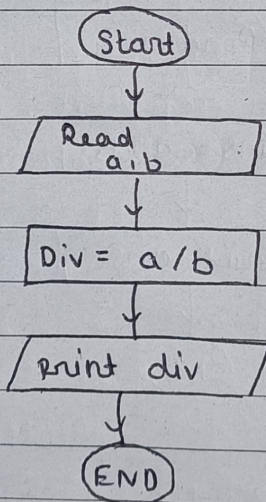 Start
Read
a,b
Div = a/b
print div
END